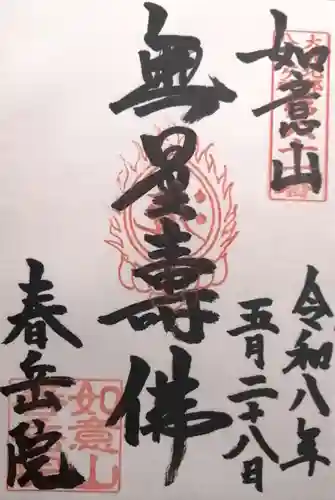 如意山
令和八年
五月二十八日
無量壽佛
春岳院
如意山